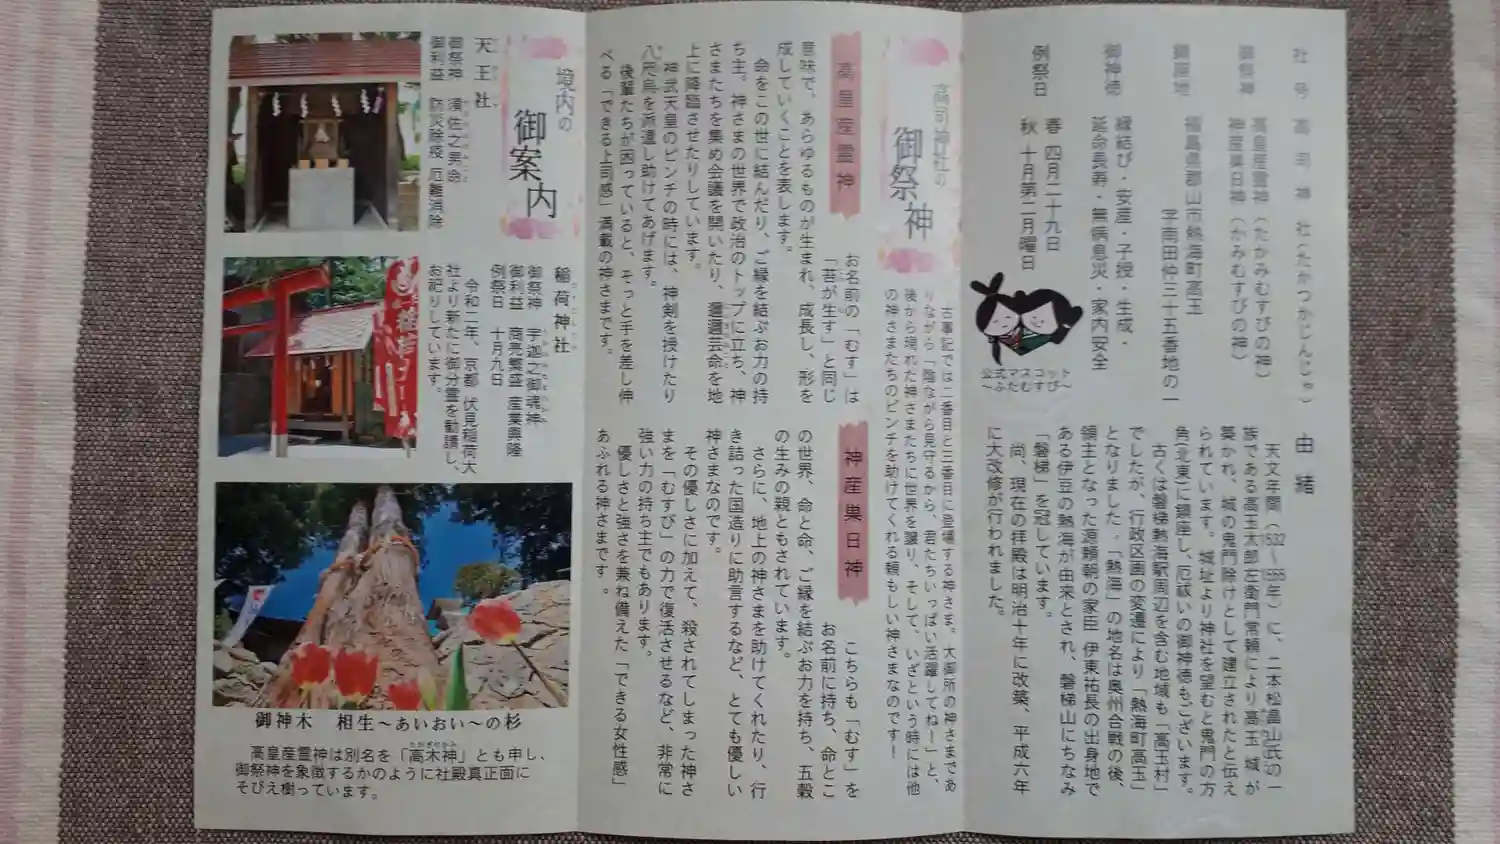 社号 高司神社(たかつかじんじゃ)
御祭神 高皇産霊神(たかみむすびの神)
神産巣日神(かみむすびの神)
鎮座地 福島県郡山市熱海町高玉
字南田仲三十五番地の一
御神徳 縁結び・安産・子授・生成・
延命長寿・無病息災・家内安全
例祭日 春 四月二十九日
秋 十月第二月曜日
公式マスコット
~ふたむすび~
由緒
天文年間(1532~1555年)に、二本松畠山氏の一
族である高玉太郎左衛門常頼により高玉城が
築かれ、城の鬼門除けとして建立されたと伝え
られています。城址より神社を望むと鬼門の方
角(北東)に鎮座し、厄祓いの御神徳もございます。
古くは磐梯熱海駅周辺を含む地域も「高玉村」
でしたが、行政区画の変遷により「熱海町高玉」
となりました。「熱海」の地名は奥州合戦の後、
領主となった源頼朝の家臣 伊東祐長の出身地で
ある伊豆の熱海が由来とされ、磐梯山にちなみ
「磐梯」を冠しています。
尚、現在の拝殿は明治十年に改築、平成六年
に大改修が行われました。
高司神社の
御祭神
古事記では二番目と三番目に登場する神さま。大御所の神さまであ
りながら「陰ながら見守るから、君たちいっぱい活躍してねー」と、
後から現れた神さまたちに世界を譲り、そして、いざという時には他
の神さまたちのピンチを助けてくれる頼もしい神さまなのです!
高皇産霊神
お名前の「むす」は
「苔が生す」と同じ
意味で、あらゆるものが生まれ、成長し、形を
成していくことを表します。
命をこの世に結んだり、ご縁を結ぶお力の持
ち主。神さまの世界で政治のトップに立ち、神
さまたちを集め会議を開いたり、邇邇芸命を地
上に降臨させたりしています。
神武天皇のピンチの時には、神剣を授けたり
八咫烏を派遣し助けてあげます。
後輩たちが困っていると、そっと手を差し伸
べる「できる上司感」満載の神さまです。
神産巣日神
こちらも「むす」を
お名前に持ち、命とこ
の世界、命と命、ご縁を結ぶお力を持ち、五穀
の生みの親ともされています。
さらに、地上の神さまを助けてくれたり、行
き詰った国造りに助言するなど、とても優しい
神さまなのです。
その優しさに加えて、殺されてしまった神さ
まを「むすび」の力で復活させるなど、非常に
強い力の持ち主でもあります。
優しさと強さを兼ね備えた「できる女性感」
あふれる神さまです。
境内の
御案内
天王社
御祭神 須佐之男命
御利益 防災除疫 厄難消除
稲荷神社
御祭神 宇迦之御魂神
御利益 商売繁盛 産業興隆
例祭日 十月九日
令和二年、京都 伏見稲荷大
社より新たに御分霊を勧請し、
お祀りしています。
御神木 相生~あいおい~の杉
高皇産霊神は別名を「高木神」とも申し、
御祭神を象徴するかのように社殿真正面に
そびえ樹っています。